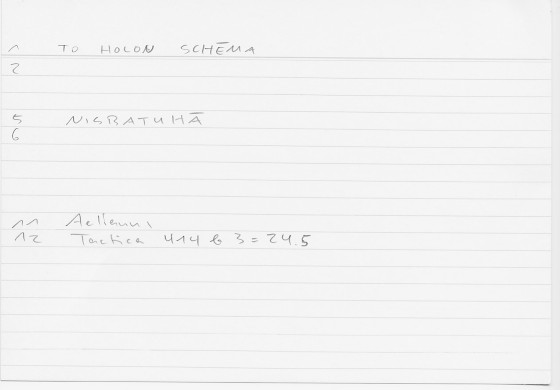 1 TO HOLON SCHĒMA
2
5 NISBATUHĀ
6
11 Aelianus,
12 Tactica 414 b 3 = 24.5